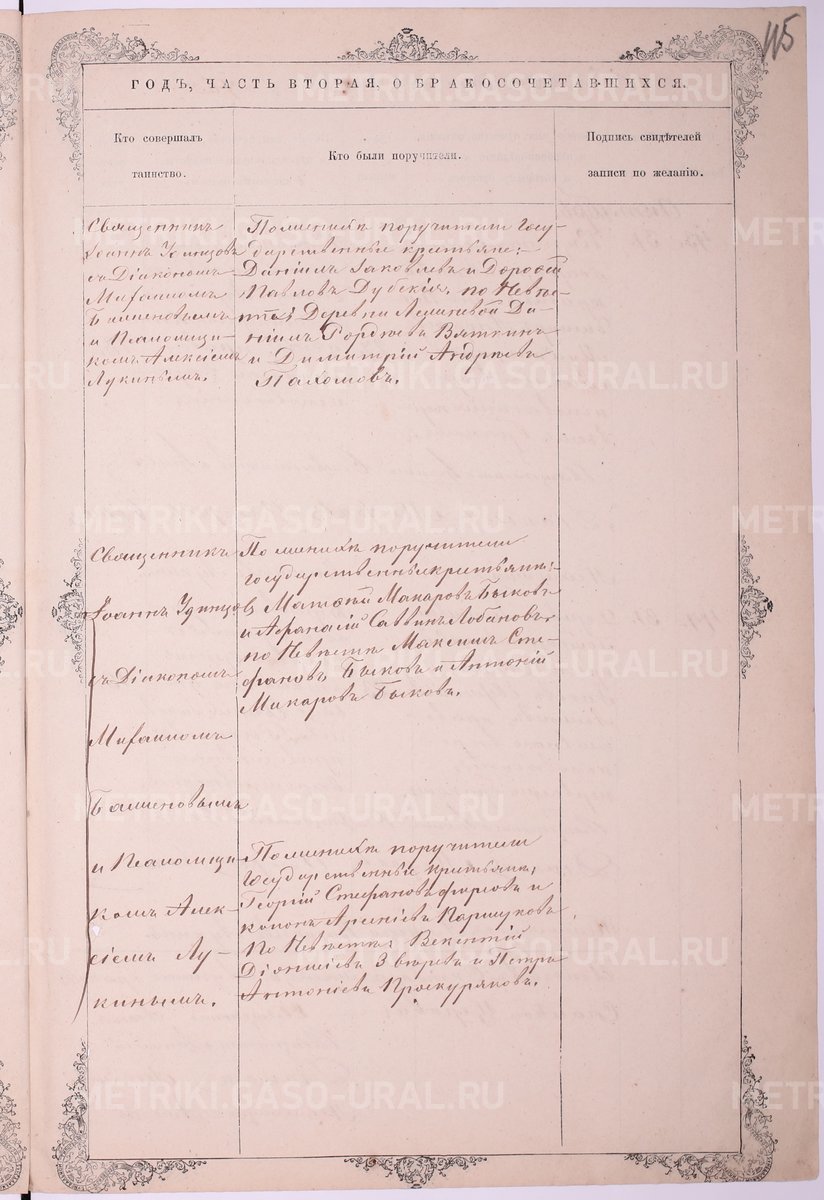 115
ГОДЪ, ЧАСТЬ ВТОРАЯ, О БРАКОСОЧЕТАВШИХСЯ.
Кто совершалъ
таинство.
Кто были поручители.
Подпись свидѣтелей
записи по желанію.
Священникъ
Іоаннъ Удинцовъ
съ Діакономъ
Мифаиломъ
Баженовымъ
и Псаломщи-
комъ Алексіемъ
Лукинымъ.
По женихѣ поручители Госу-
дарственные крестьяне:
Даніилъ Іаковлевъ и Дорофей
Павловъ Дубскія, по Невѣ-
стѣ: Деревни Да-
ніилъ Вяткинъ
и Димитрій Андреевъ
Пахомовъ.
Священникъ
Іоаннъ Удинцовъ
съ Діакономъ
Мифаиломъ
Баженовымъ
и Псаломщи-
комъ Алек-
сіемъ Лу-
кинымъ.
По женихѣ поручители
государственные крестьяне:
Матѳей Макаровъ Быковъ
и Афанасій Саввинъ Лобановъ,
по Невѣстѣ Максимъ Сте-
фановъ Быковъ и Антоній
Макаровъ Быковъ.
По женихѣ поручители
Государственные крестьяне,
Георгій Стефановъ и
Кононъ Арсеніевъ Паршуковъ
По Невѣстѣ: Викентій
Діонисіевъ Звѣревъ и Петръ
Антоніевъ Проскуряковъ.
METRIKI.GASO-URAL.RU